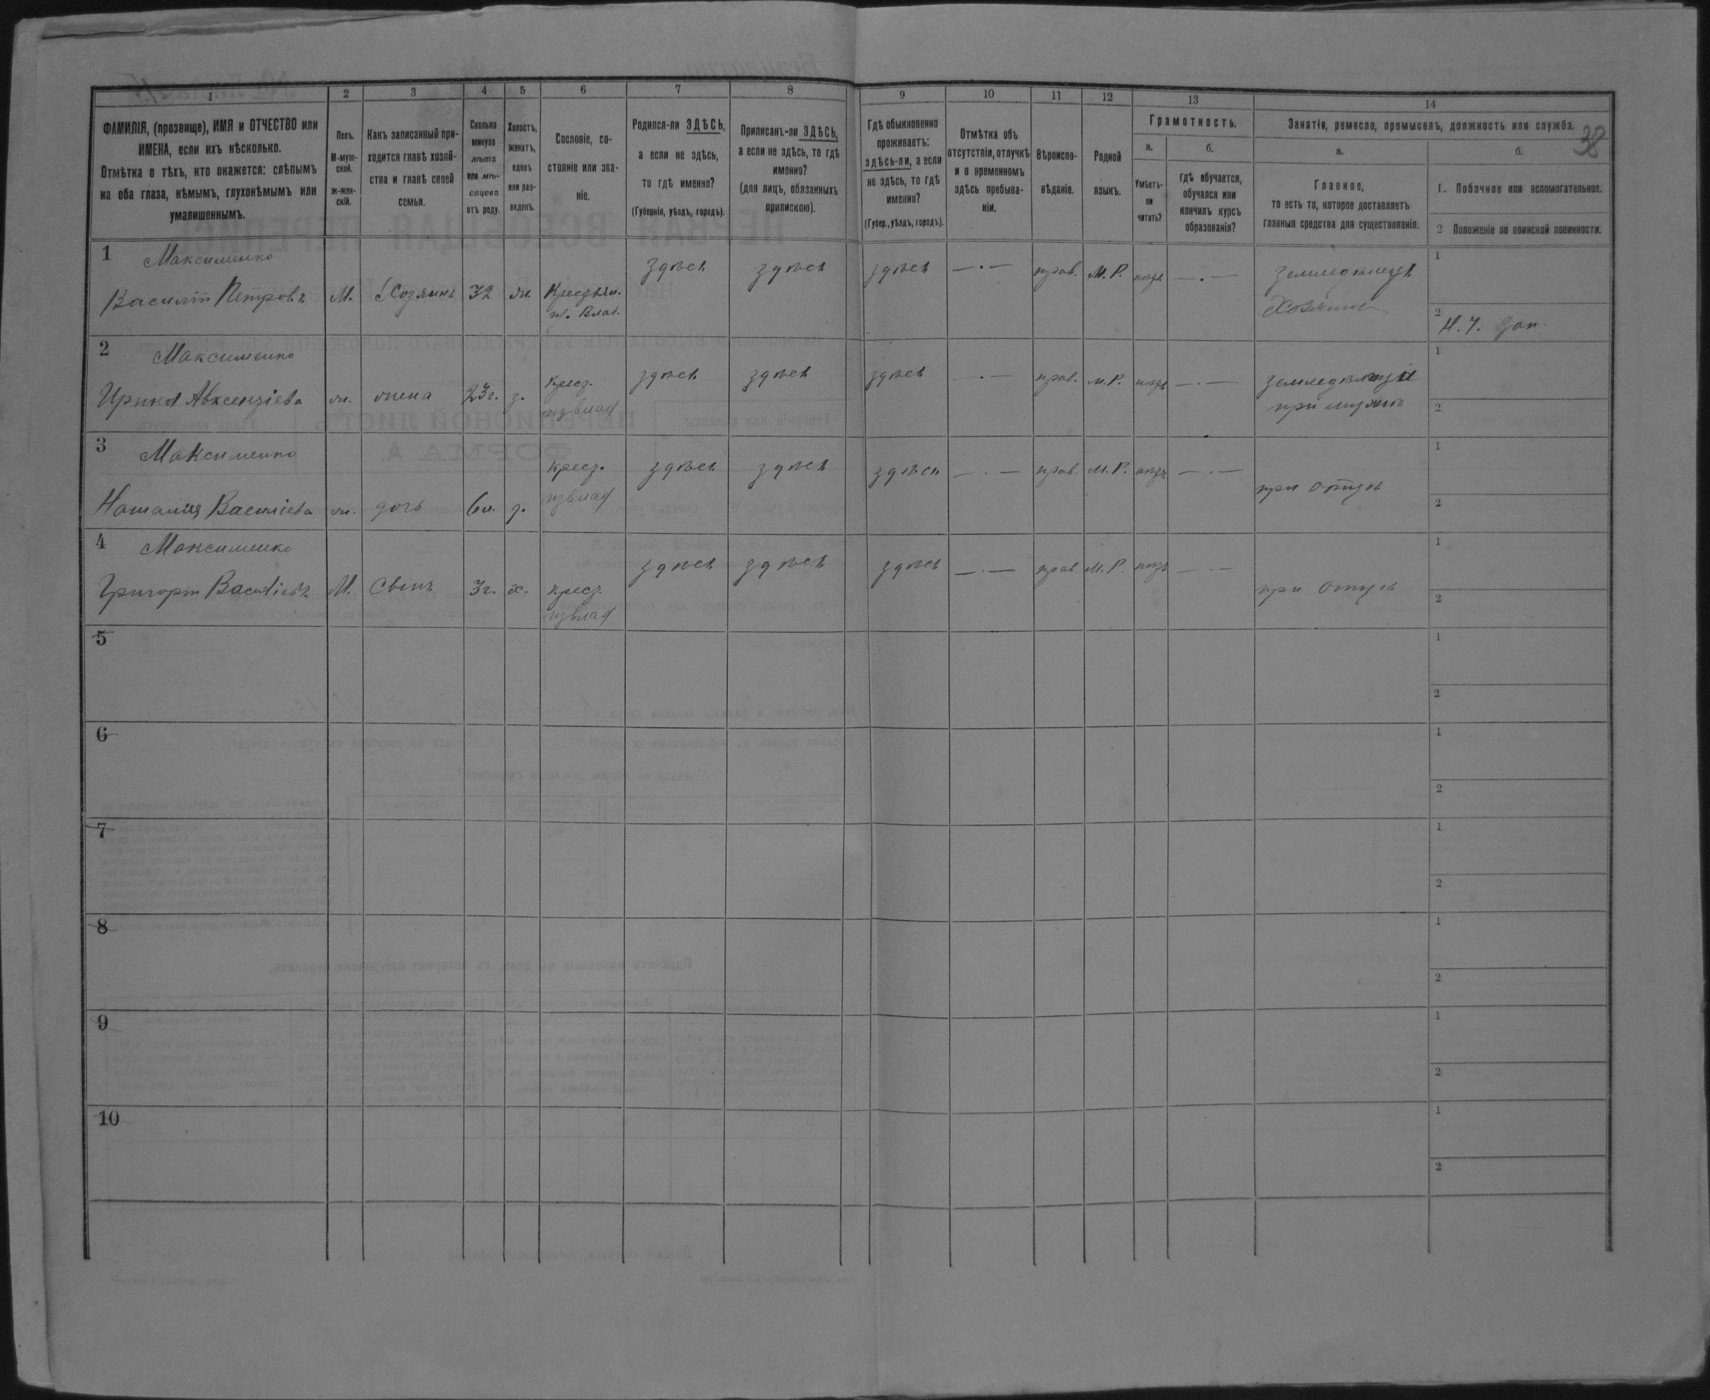 38
1 2 3 4 5 6 7 8 9 10 11 12 13 14
ФАМИЛІЯ, (прозвище), ИМЯ и ОТЧЕСТВО или ИМЕНА, если ихъ нѣсколько.
Отмѣтка о тѣхъ, кто окажется: слѣпымъ на оба глаза, нѣмымъ, глухонѣмымъ или умалишеннымъ.
Полъ.
М-муж-
ской.
ж-жен-
скій.
Какъ записанный при-
ходится главѣ хозяй-
ства и главѣ своей
семьи.
Сколько
минуло
лѣтъ
или мѣ-
сяцевъ
отъ роду.
Холостъ,
женатъ,
вдовъ
или раз-
веденъ.
Сословіе, со-
стояніе или зва-
ніе.
Родился-ли ЗДѢСЬ,
а если не здѣсь,
то гдѣ именно?
(Губернія, уѣздъ, городъ).
Приписанъ-ли ЗДѢСЬ,
а если не здѣсь, то гдѣ
именно?
(для лицъ, обязанныхъ
припискою).
Гдѣ обыкновенно
проживаетъ:
здѣсь-ли, а если
не здѣсь, то гдѣ
именно?
(Губер., уѣздъ, городъ).
Отмѣтка объ
отсутствіи, отлучкѣ
и о временномъ
здѣсь пребыва-
ніи.
Вѣроиспо-
вѣданіе.
Родной
языкъ.
Грамотность.
а.
Умѣетъ-
ли
читать?
б.
Гдѣ обучается,
обучался или
кончилъ курсъ
образованія?
Занятіе, ремесло, промыселъ, должность или служба.
а.
Главное,
то есть то, которое доставляетъ
главныя средства для существованія.
б.
1. Побочное или вспомогательное.
2 Положеніе по воинской повинности.
1 Максименко
Василій Петровъ М. Хозяинъ 32 ж. Крестьян. здѣсь здѣсь здѣсь — · — прав. М. Р. нѣтъ — · — земледѣлецъ
Хозяинъ
1
2
2 Максименко
Ирина Авксентіева ж. жена 23г. з. крест. здѣсь здѣсь здѣсь — · — прав. М. Р. нѣтъ — · —
при мужѣ
1
2
3 Максименко
Наталія Василіева ж. дочь 6л. д. крест. здѣсь здѣсь здѣсь — · — прав. М. Р. нѣтъ — · —
при отцѣ
1
2
4 Максименко
Григорій Василіевъ М. сынъ 3г. х. крест. здѣсь здѣсь здѣсь — · — прав. М. Р. нѣтъ — · —
при отцѣ
1
2
5
1
2
6
1
2
7
1
2
8
1
2
9
1
2
10
1
2